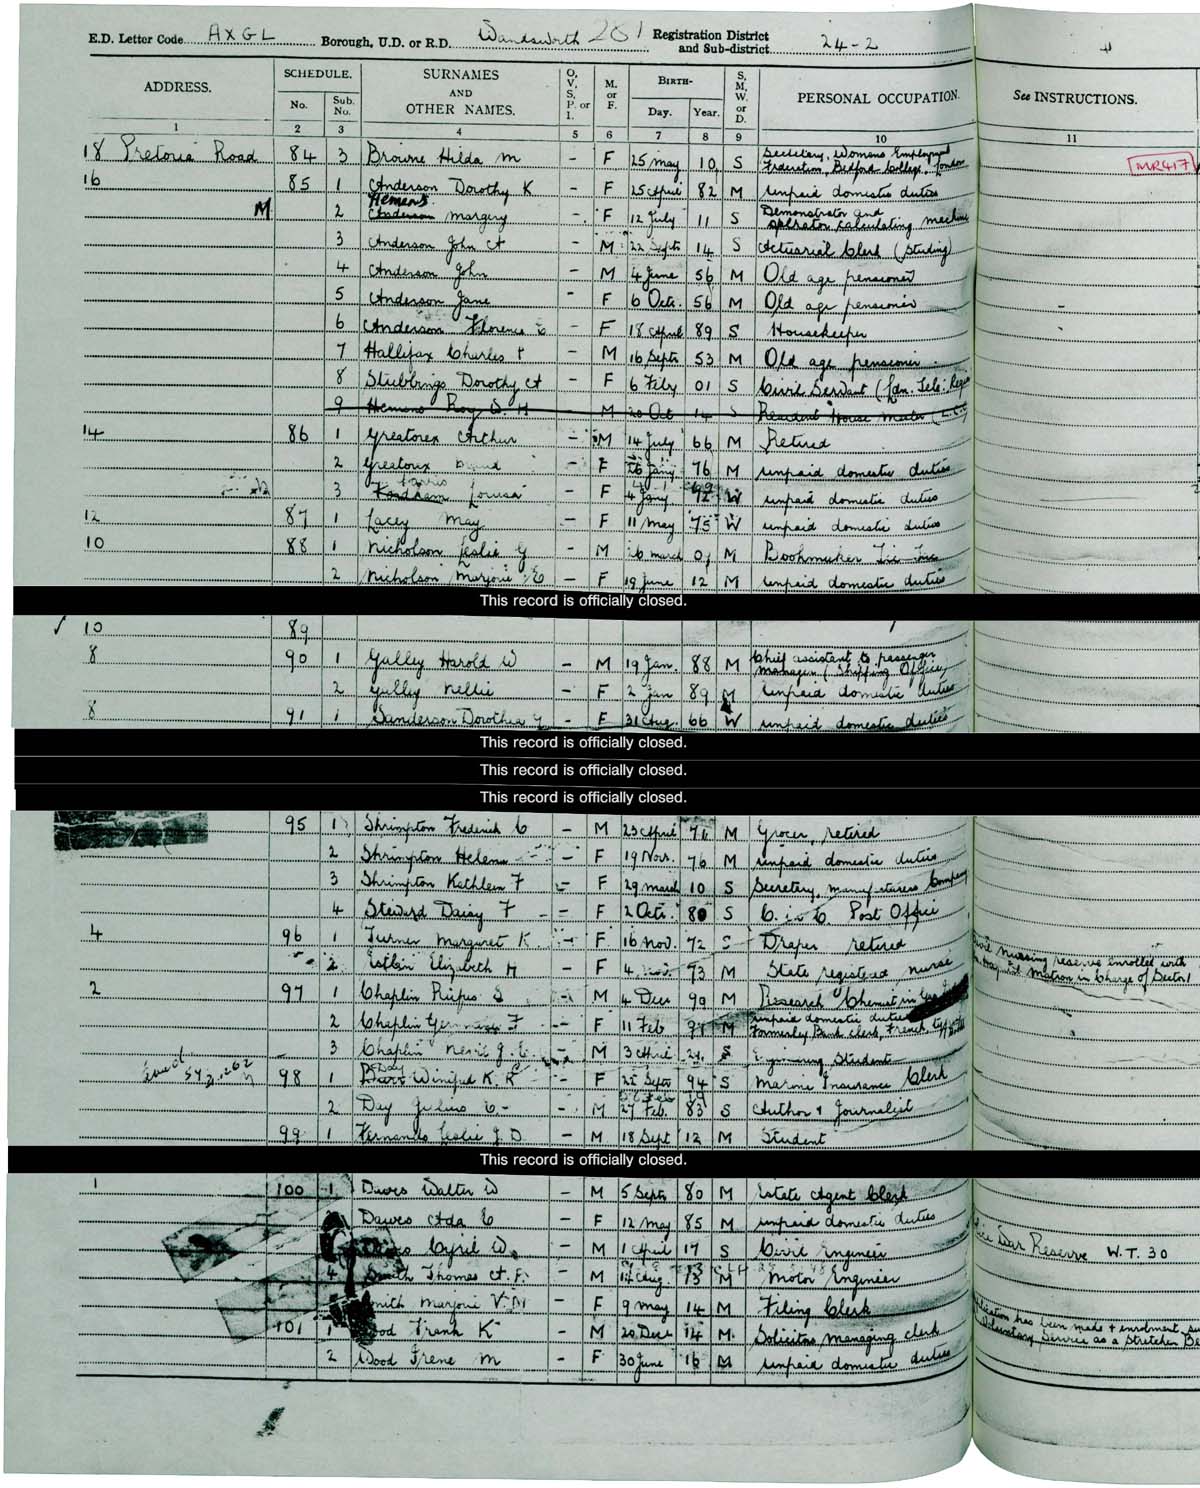 E.D. Letter Code AXGL Borough, U.D. or R.D. Wandsworth 281 Registration District and Sub-district 24-2
ADDRESS. SCHEDULE. No. Sub. No. SURNAMES AND OTHER NAMES. O, V, S, P, or I. M. or F. BIRTH- Day. Year. S, M, W. or D. PERSONAL OCCUPATION. See INSTRUCTIONS.
1 2 3 4 5 6 7 8 9 10 11
18 Pretoria Road 84 3 Browne Hilda M - F 25 May 10 S Secretary, Womens Employment Federation, Bedford College, London MR417
16 85 1 Anderson Dorothy K - F 25 April 82 M unpaid domestic duties
M 2 Hemens Anderson Margery - F 12 July 11 S Demonstrator and operator calculating machine
3 Anderson John A - M 22 Septr 14 S Actuarial Clerk (Studing)
4 Anderson John - M 4 June 56 M Old age pensioner
5 Anderson Jane - F 6 Octr. 56 M Old age pensioner
6 Anderson Florence E - F 18 April 89 S Housekeeper
7 Hallifax Charles - M 16 Septr 53 M Old age pensioner
8 Stubbings Dorothy A - F 6 Feby 01 S Civil Servant
9 Hemens Roy S. H M 20 Oct 14 S Resident House Master
14 86 1 Greatorex Arthur - M 14 July 66 M Retired
2 Greatorex - F Jany 76 M unpaid domestic duties
3 Louisa - F 4 Jany W unpaid domestic duties
12 87 1 Lacey May - F 11 May 75 W unpaid domestic duties
10 88 1 Nicholson Leslie G - M 16 March 01 M Bookmaker
2 Nicholson Marjorie E - F 19 June 12 M unpaid domestic duties
This record is officially closed.
10 89
8 90 1 Gulley Harold W - M 19 Jan. 88 M Chief assistant to passenger manager (Shipping Office)
2 Gulley Nellie - F 2 Jan 89 M unpaid domestic duties
8 91 1 Sanderson Dorothea - F 31 Aug. 66 W unpaid domestic duties
This record is officially closed.
This record is officially closed.
This record is officially closed.
95 1 Shrimpton Frederick C - M 23 April 71 M Grocer, retired
2 Shrimpton Helena - F 19 Nov. 76 M unpaid domestic duties
3 Shrimpton Kathleen F - F 29 March 10 S Secretary, manufacturers Company
4 Steward Daisy F - F 2 Octr. 80 S Post Office
4 96 1 Turner Margaret K - F 16 Nov. 72 S Draper retired
2 Elizabeth H - F 4 Nov. 73 M State registered nurse Civil nursing reserve enrolled with Matron in Charge of Sector 1
2 97 1 Chaplin Rufus S - M 4 Decr 99 M Research Chemist in
2 Chaplin F - F 11 Feb M unpaid domestic duties Formerly Bank clerk, French,
3 Chaplin G. E. - M 3 April 21 S Engineering Student
98 1 Day Winifred K. R - F 22 Septr 94 S Marine Insurance Clerk
2 Day Julius C - M 27 Feb. 83 S Author & Journalist
99 1 Fernando Leslie J D - M 18 Sept 12 M Student
This record is officially closed.
1 100 1 Dawes Walter W - M 5 Septr 80 M Estate Agent Clerk
Dawes Ada E - F 12 May 85 M unpaid domestic duties
Cyril W. - M 1 April 17 S Civil Engineer War Reserve W.T. 30
4 Smith Thomas A. F. - M Aug. 13 M Motor Engineer
Smith Marjorie V. M - F 9 May 14 M Filing Clerk
101 1 Wood Frank K - M 20 Decr 14 M. Solicitors managing clerk has been made & enrolment Service as a Stretcher
2 Wood Irene M - F 30 June 16 M unpaid domestic duties